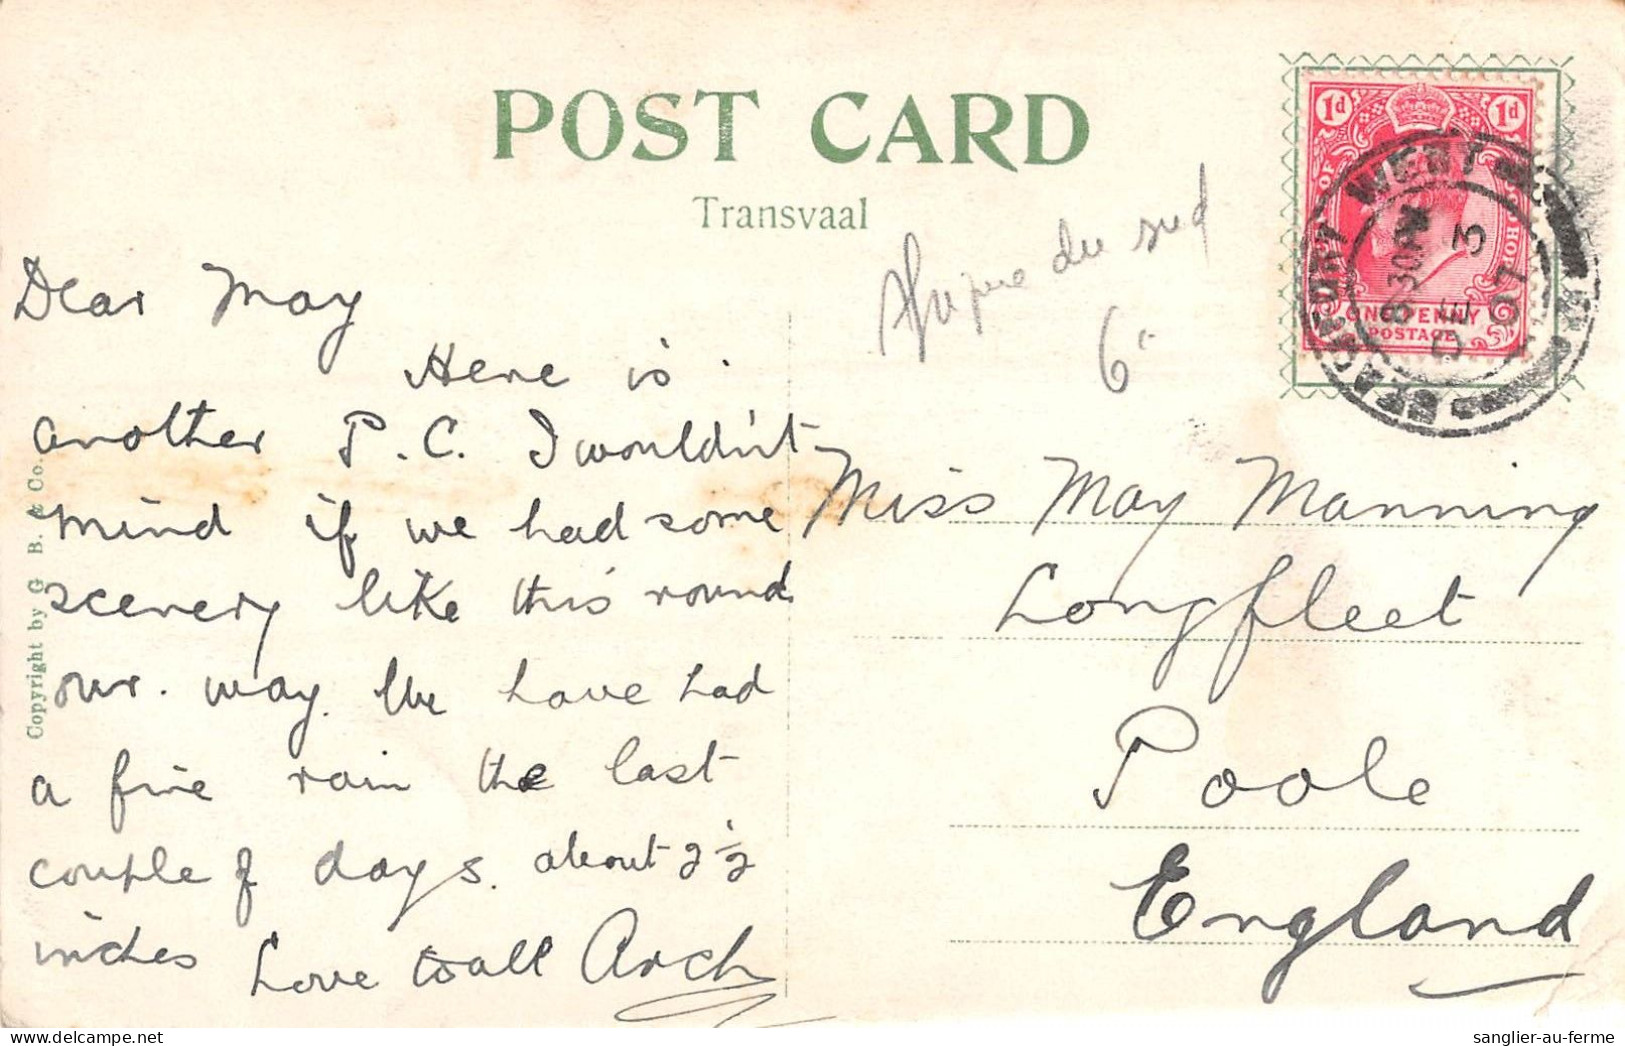 POST CARD
Transvaal
Afrique du sud
6
1d 1d
OF
HOPE
ONE PENNY
POSTAGE
BEAUFORT WEST
8 30 PM
DE 3
07
Dear May
Here is
another P.C. I wouldn't
mind if we had some
scenery like this round
our way. We have had
a fine rain the last
couple of days. about 2½
inches Love to all Arch
Miss May Manning
Longfleet
Poole
England
Copyright by G. B. & Co.
sanglier-au-ferme